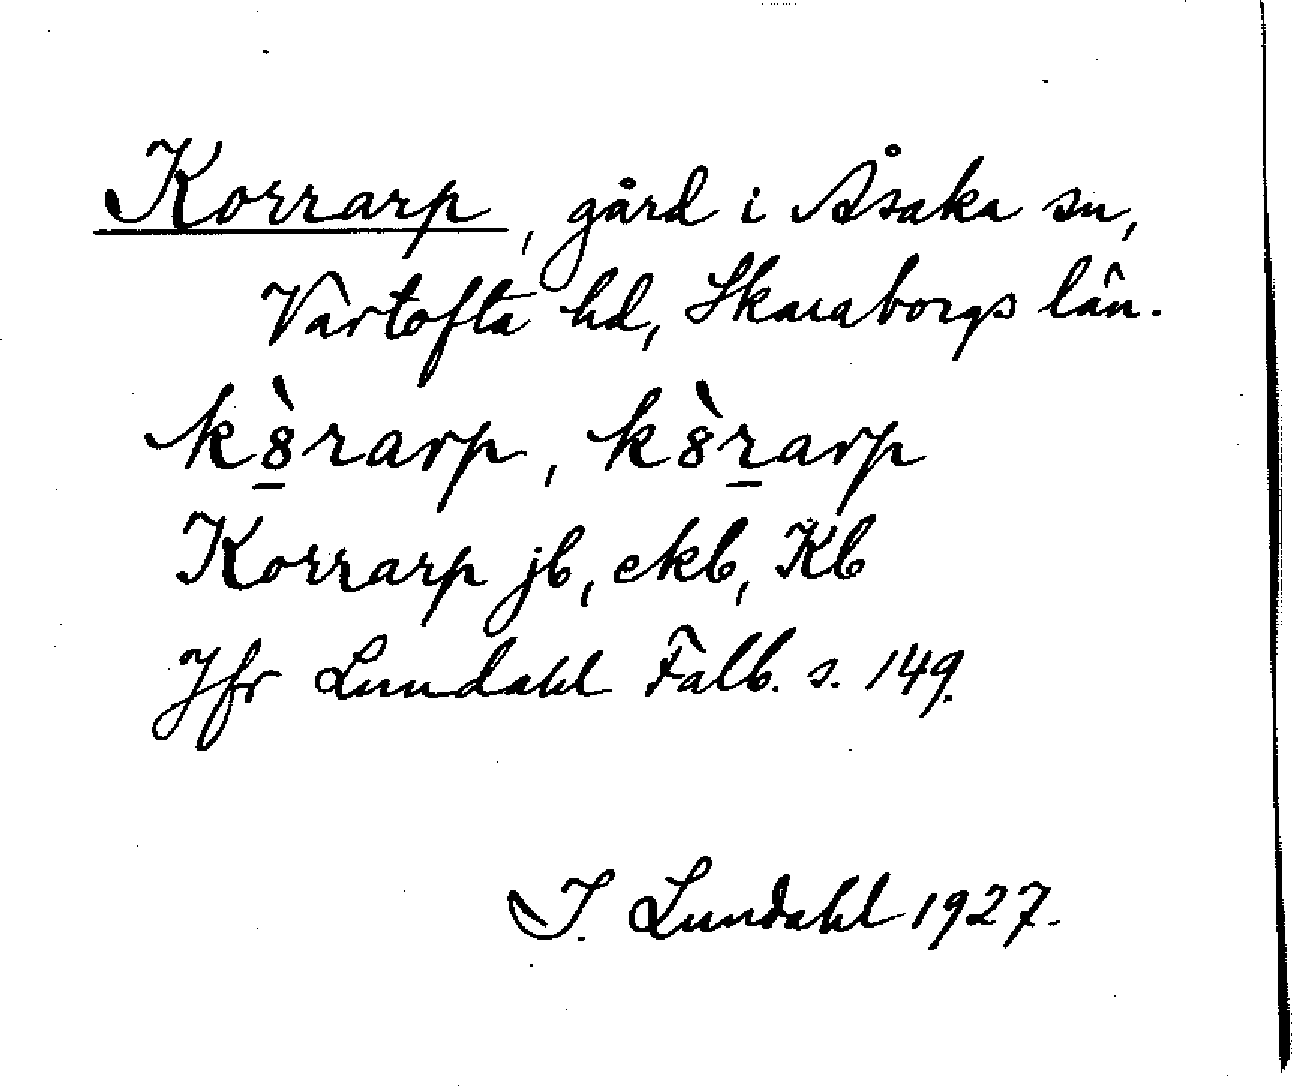 Korrarp, gård i Åsaka sn,
Vartofta hd, Skaraborgs län.
k8̱̀rarp, k8̀ṟarp
Korrarp jb, ekb, Kb
Jfr Lundahl Falb. s. 149.
I. Lundahl 1927.